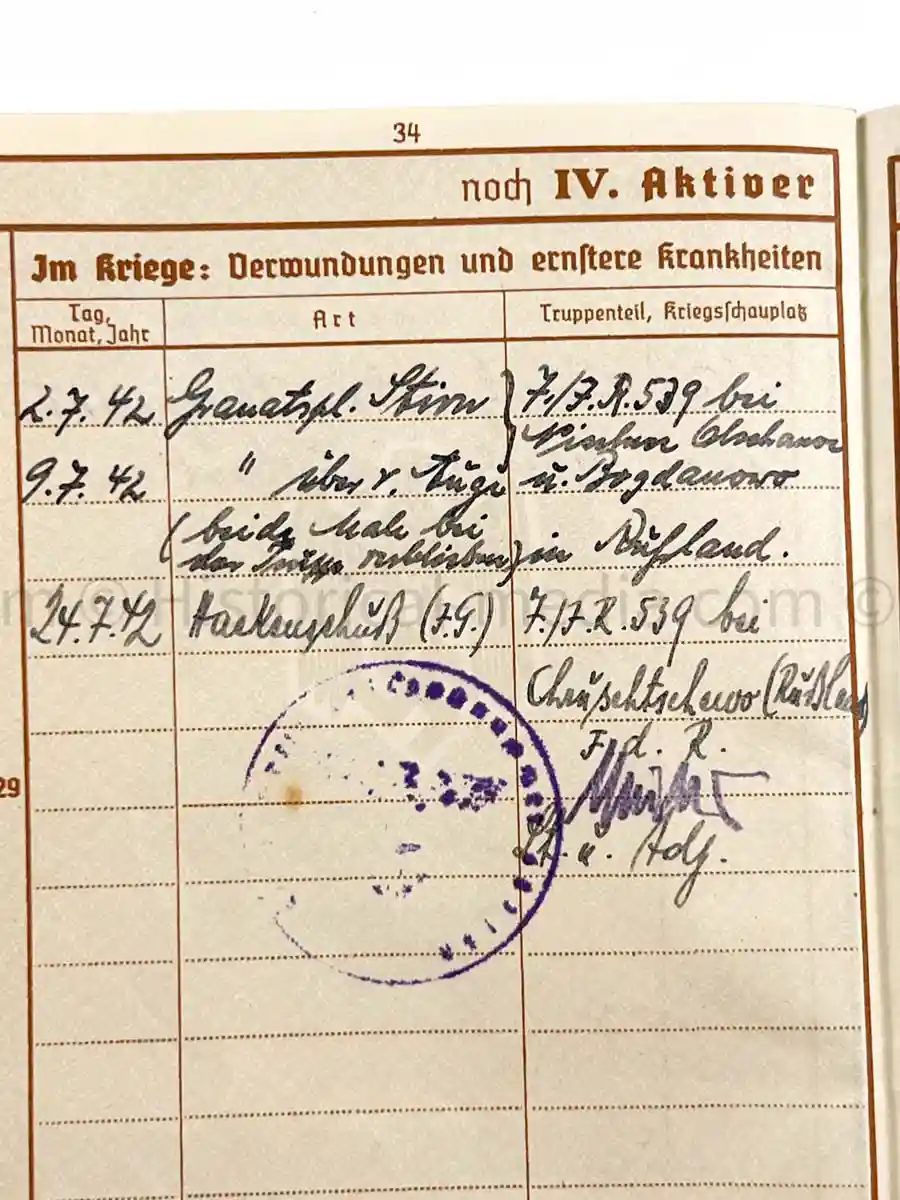 34
noch IV. Aktiver
Im Kriege: Verwundungen und ernstere Krankheiten
Tag, Monat, Jahr
Art
Truppenteil, Kriegsschauplatz
2.7.42 Granatspl. Stirn } 7./J.R.539 bei
Olschan
9.7.42 " über r. Auge u. Bogdanowo
(beide Male bei
der Truppe verblieben) in Rußland.
24.7.42 Hackenschuß (J.G.) 7./J.R.539 bei
Chruschtschewo (Rußland)
F. d. R.
Lt. u. Adj.
29
Historical-media.com ©